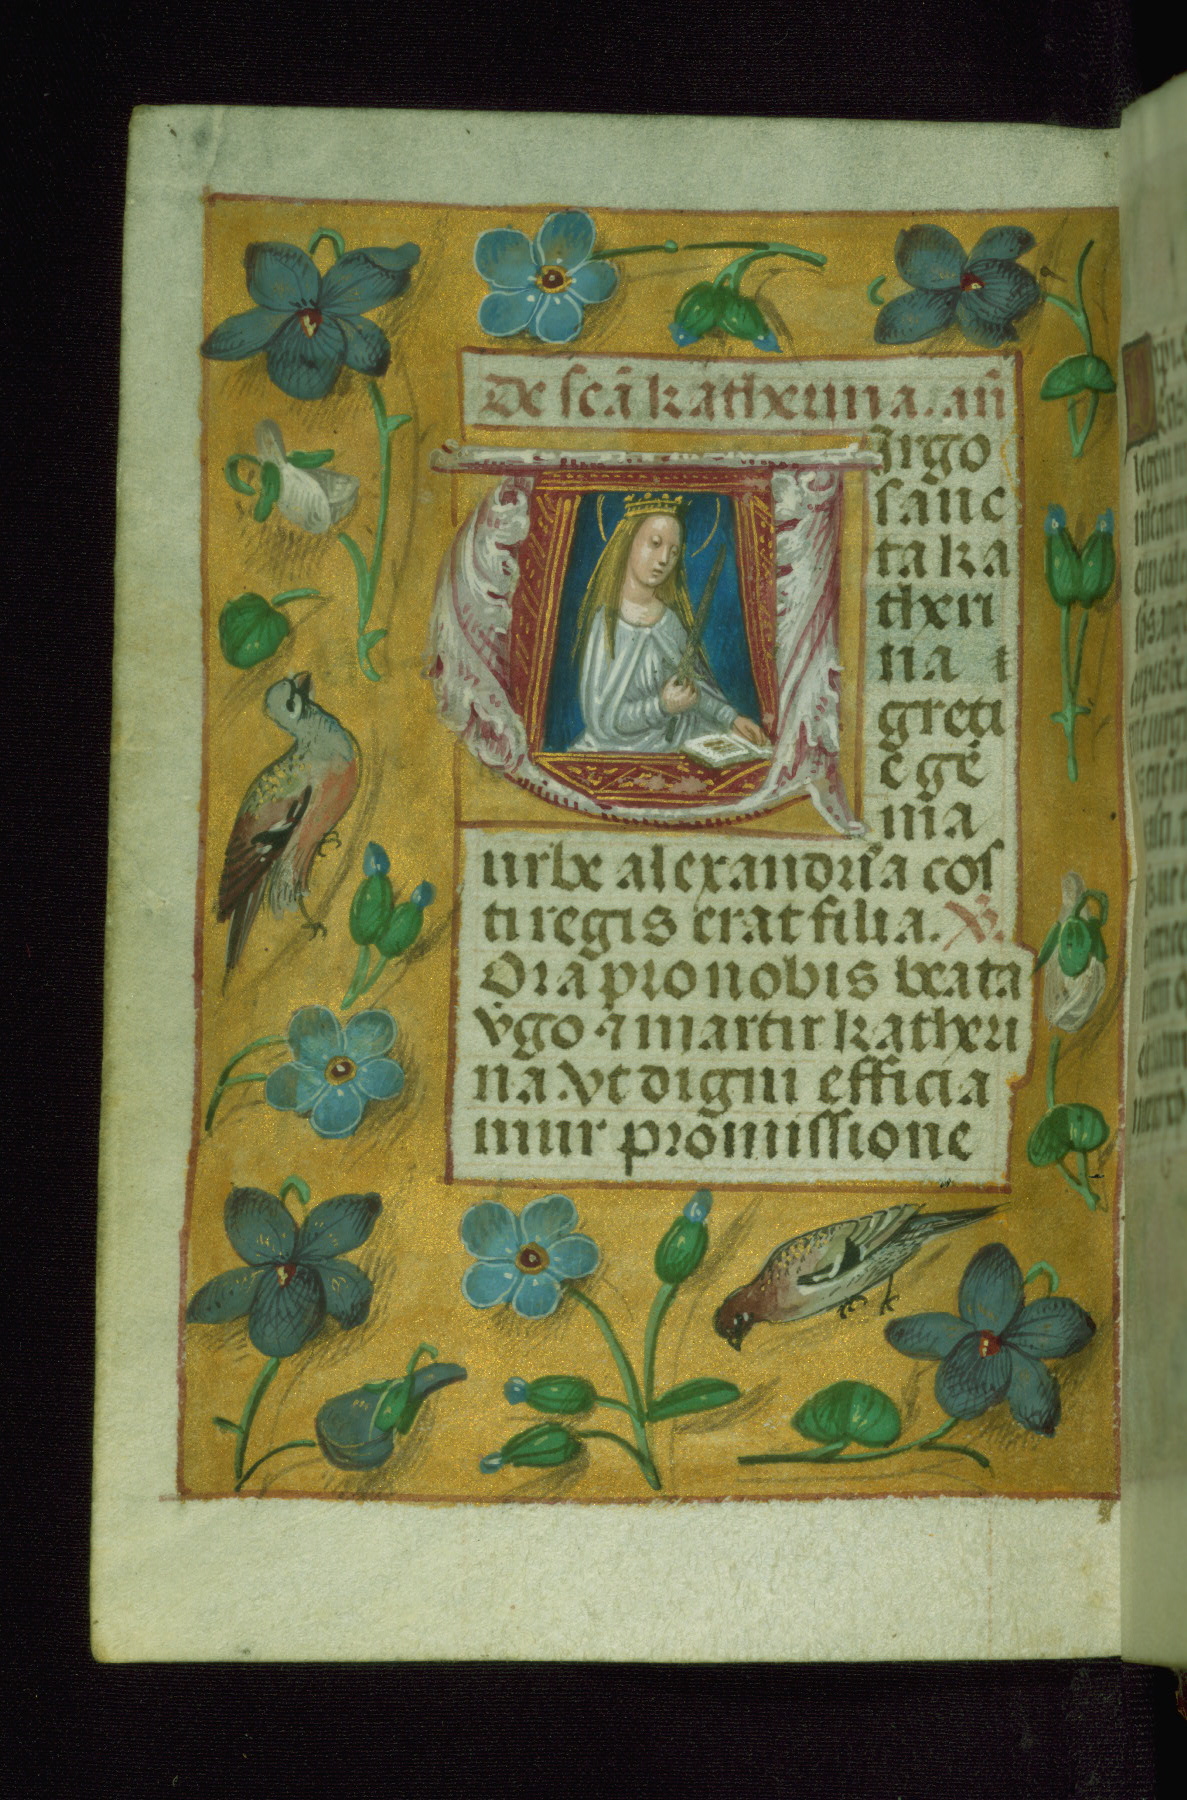 De sc̄a katherina. an̄
Virgo
sanc
ta ka
theri
na ⁊
greci
e gē
ma
urbe alexandria cos
ti regis erat filia. v̄.
Ora pro nobis beata
v̄go ⁊ martir katheri
na. vt digni efficia
mur promissione